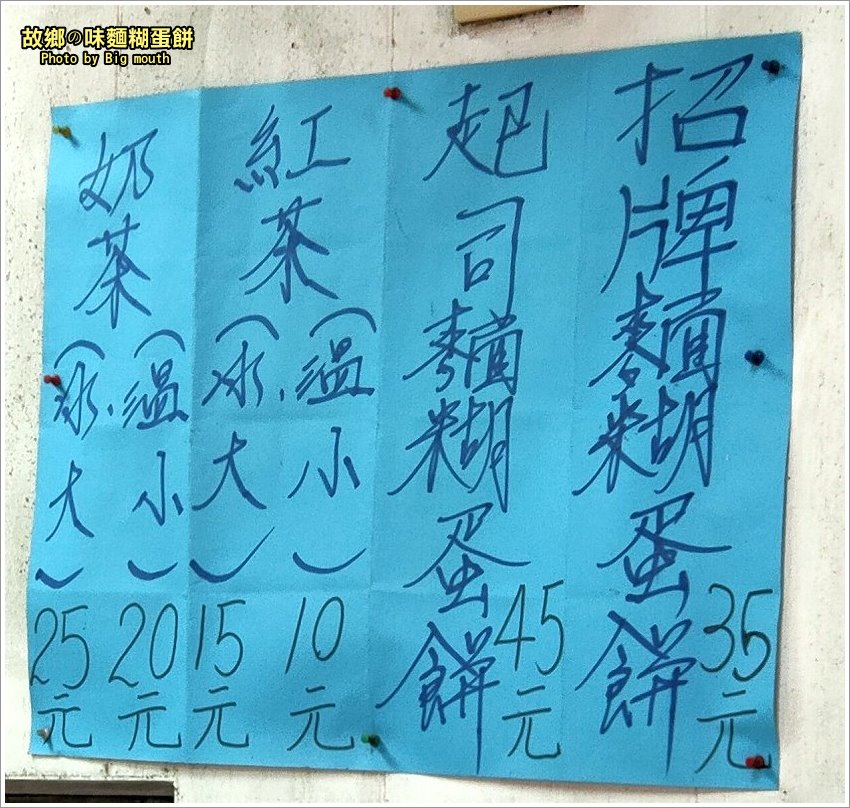 故鄉の味麵糊蛋餅
Photo by Big mouth
招牌麵糊蛋餅 35元
起司麵糊蛋餅 45元
紅茶(溫小) 10元
(冰.大) 15元
奶茶(溫小) 20元
(冰.大) 25元